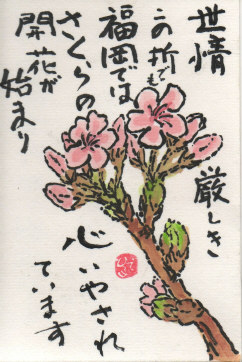 世情
厳しき
この折でも
福岡では
さくらの
開花が
始まり
心いやされ
ています